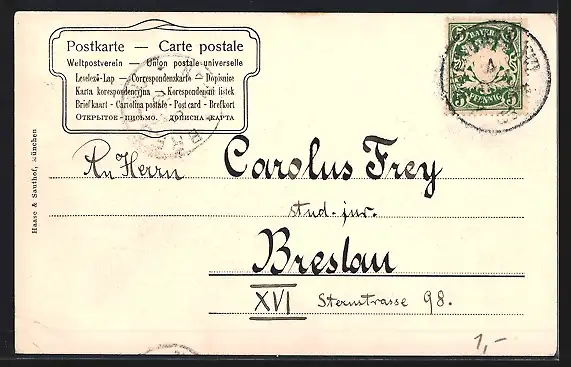 Postkarte — Carte postale
Weltpostverein — Union postale universelle
Levelező-Lap — Correspondenzkarte — Dopisnice
Karta korespondencyjna — Korespondenční listek
Briefkaart — Cartolina postale — Post card — Brefkort
ОТКРЫТОЕ - ПИСЬМО. ДОПИСНА - КАРТА
5 BAYERN 5
5 PFENNIG 5
BRE
An Herrn Carolus Frey
stud. jur.
Breslau
XVI Sternstrasse 98.
Haase & Santhof, München
1,-